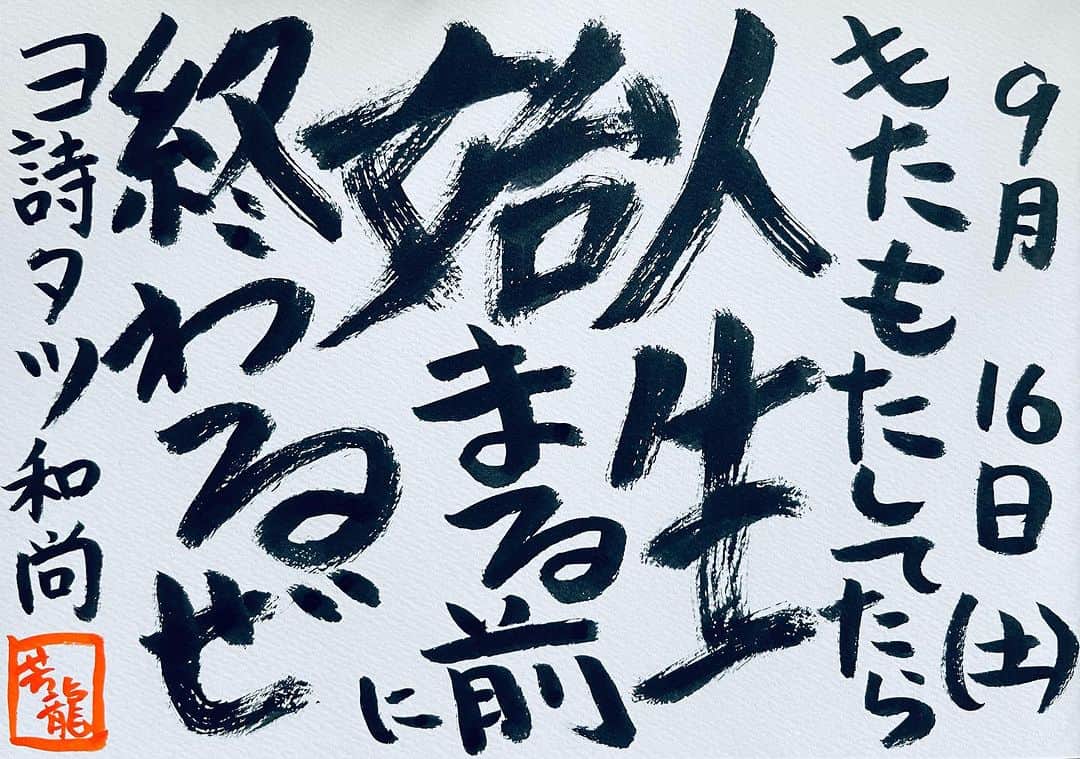 9月16日(土)
もたもたしてたら
人生
始まる前に
終わるぜ
ヨ詩タツ和尚
芳龍